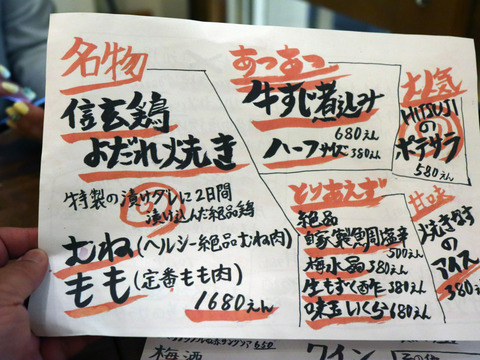 名物
信玄鶏
よだれ焼き
特製の漬けダレに2日間
漬け込んだ絶品鶏
むね(ヘルシー絶品むね肉)
もも(定番もも肉)
1680えん
あつあつ
牛すじ煮込み
680えん
ハーフサイズ380えん
大人気
HITSUJI
の
ポテサラ
580えん
とりあえず
絶品
自家製魚周塩辛
500えん
梅水晶580えん
生もずく酢380えん
味玉いくら680えん
甘味
焼きなす
の
アイス
380えん
650
梅酒
ワイン